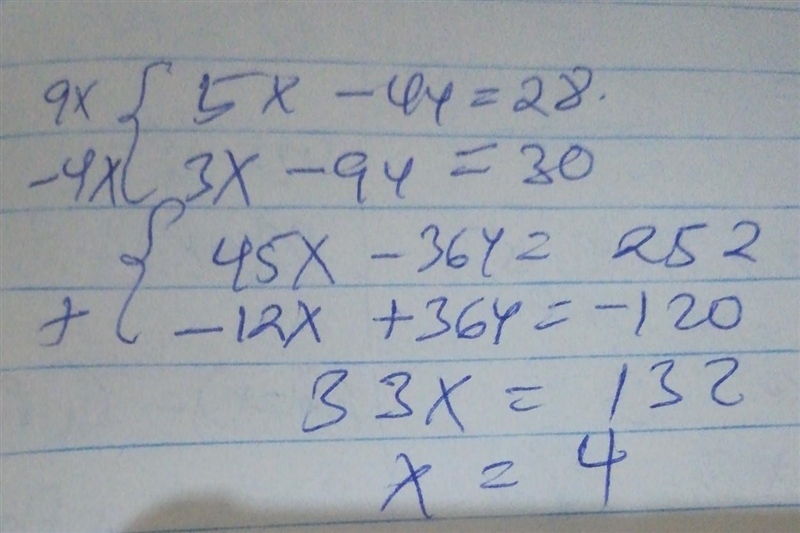 9x { 5x - 4y = 28.
-4x { 3x - 9y = 30
{ 45x - 36y = 252
+ { -12x + 36y = -120
33x = 132
x = 4